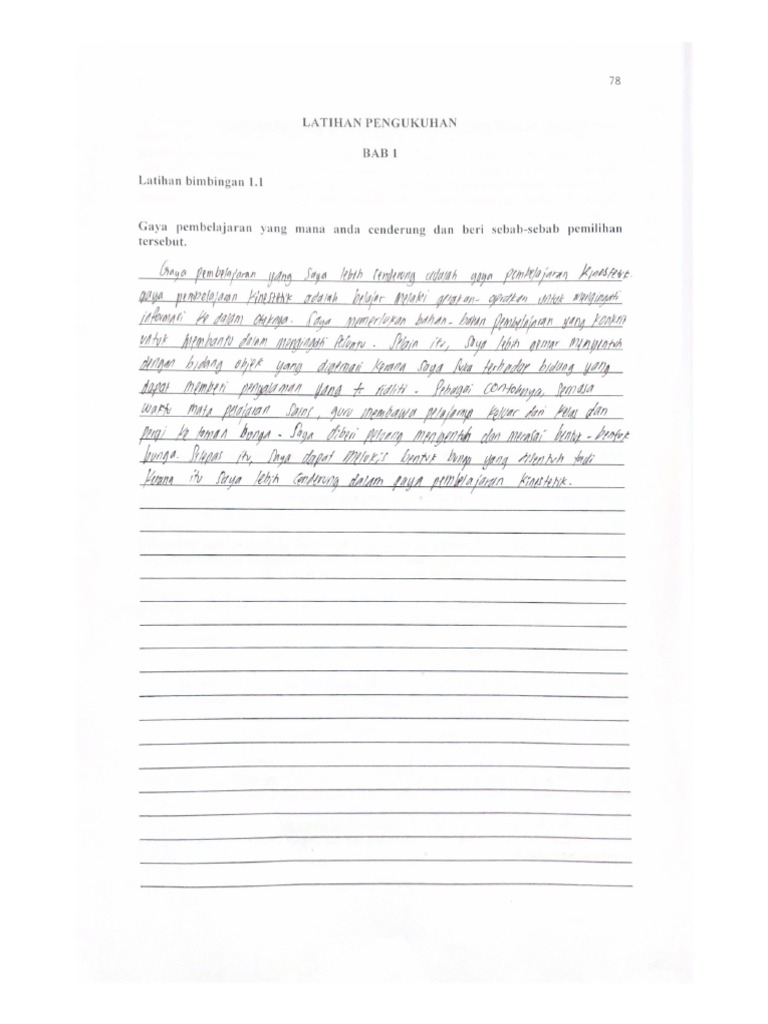 78
LATIHAN PENGUKUHAN
BAB 1
Latihan bimbingan 1.1
Gaya pembelajaran yang mana anda cenderung dan beri sebab-sebab pemilihan
tersebut.
Gaya pembelajaran yang saya lebih cenderung adalah gaya pembelajaran kinestetik.
gaya pembelajaran kinestetik adalah belajar melalui gerakan- untuk mengingati
informasi ke dalam otaknya. Saya memerlukan bahan-bahan pembelajaran yang konkrit
untuk membantu dalam mengingati sesuatu. Selain itu, saya lebih gemar menyentuh
dengan bidang objek yang dipelajari kerana saya suka terhadap bidang yang
dapat memberi pengalaman yang realiti. Sebagai contohnya, semasa
waktu mata pelajaran sains, guru membawa pelajarnya keluar dari kelas dan
pergi ke taman bunga. Saya diberi peluang menyentuh dan merasai bentuk-bentuk
bunga. Selepas itu, saya dapat melukis bentuk bunga yang disentuh tadi
kerana itu saya lebih cenderung dalam gaya pembelajaran kinestetik.